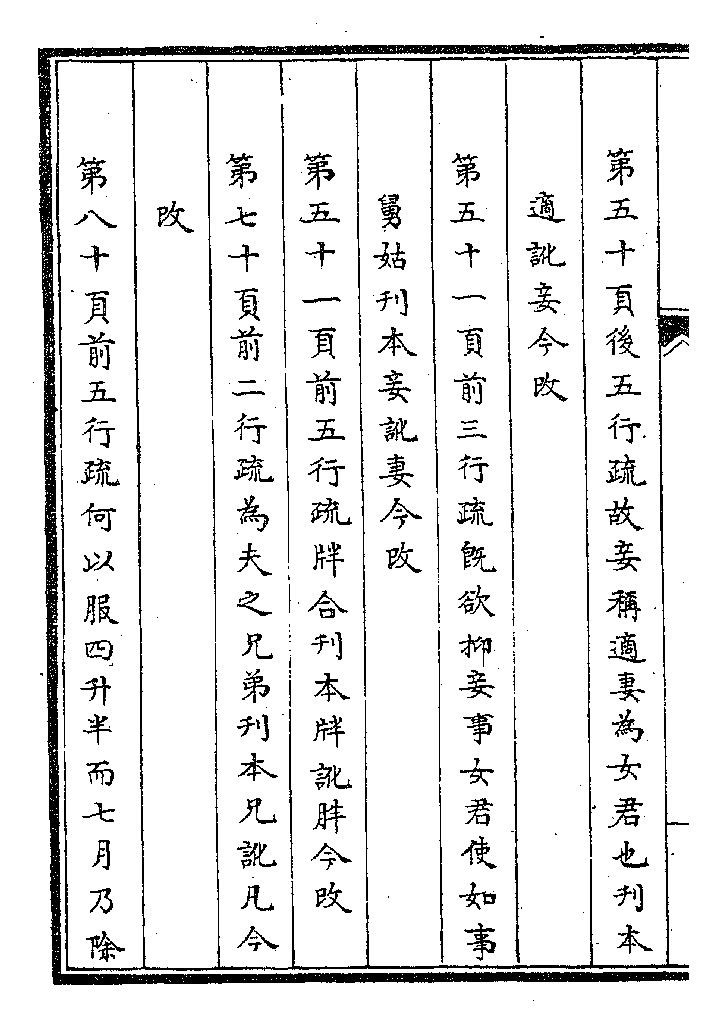 第五十頁後五行疏故妾稱適妻為女君也刊本
適訛妾今改
第五十一頁前三行疏既欲抑妾事女君使如事
舅姑刊本妾訛妻今改
第五十一頁前五行疏牉合刊本牉訛胖今改
第七十頁前二行疏為夫之兄弟刊本兄訛凡今
改
第八十頁前五行疏何以服四升半而七月乃除